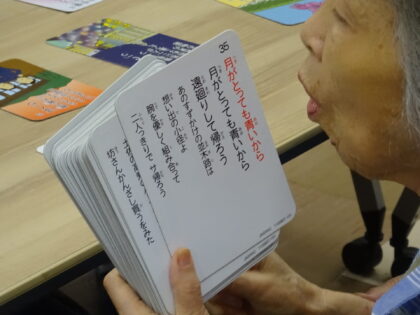 36
月がとっても青いから
月がとっても青いから
遠廻りして帰ろう
あのすずかけの並木路は
想い出の小径よ
腕を優しく組み合って
二人っきりで サ帰ろう
坊さんかんざし買うをみた